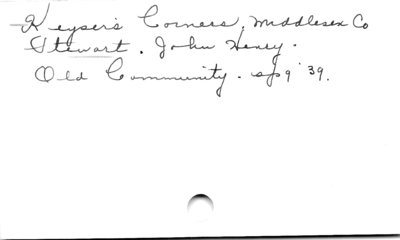 Keyser's Corners, Middlesex Co
Stewart. John Henry.
Old Community. sp 9 '39.